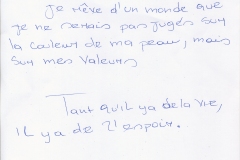 Je rêve d'un monde que
je ne serais pas jugés sur
la couleur de ma peau, mais
sur mes valeurs
Tant qu'il ya de la vie,
il ya de l'espoir.